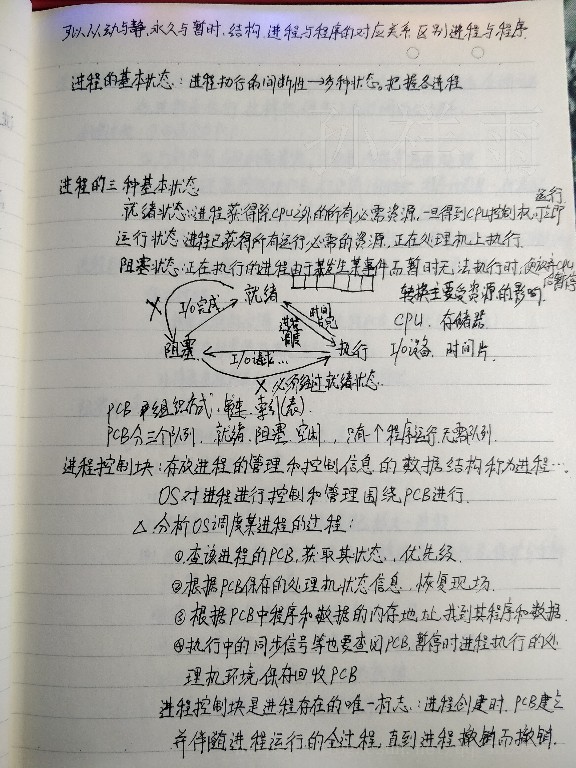 可以从动与静,永久与暂时,结构,进程与程序的对应关系区别进程与程序
进程的基本状态:进程执行的间断性→多种状态。把握各进程
进程的三种基本状态
就绪状态:进程获得除CPU之外的所有必需资源,一旦得到CPU控制权,可立即
运行
运行状态:进程已获得所有运行必需的资源,正在处理机上执行.
阻塞状态:正在执行的进程由于某发生某事件而暂时无法执行时,便放弃CPU
转换主要受资源的影响
X
I/O完成
就绪
进程
调度
时间
片完
CPU、存储器
阻塞
I/O请求…
执行
I/O设备、时间片.
X 必须经过就绪状态.
PCB 组织方式,链,索引(表).
PCB分三个队列,就绪,阻塞,空闲,只有一个程序运行,无需队列.
进程控制块:存放进程的管理和控制信息的数据结构称为进程…
OS对进程进行控制和管理围绕PCB进行.
△分析OS调度某进程的过程:
①查该进程的PCB,获取其状态,优先级.
②根据PCB保存的处理机状态信息,恢复现场.
③根据PCB中程序和数据的内存地址,找到其程序和数据.
④执行中的同步信号等也要查阅PCB,暂停时进程执行的处
理机环境,保存回收PCB
进程控制块是进程存在的唯一标志:进程创建时,PCB建立
并伴随进程运行的全过程,直到进程撤销而撤销.